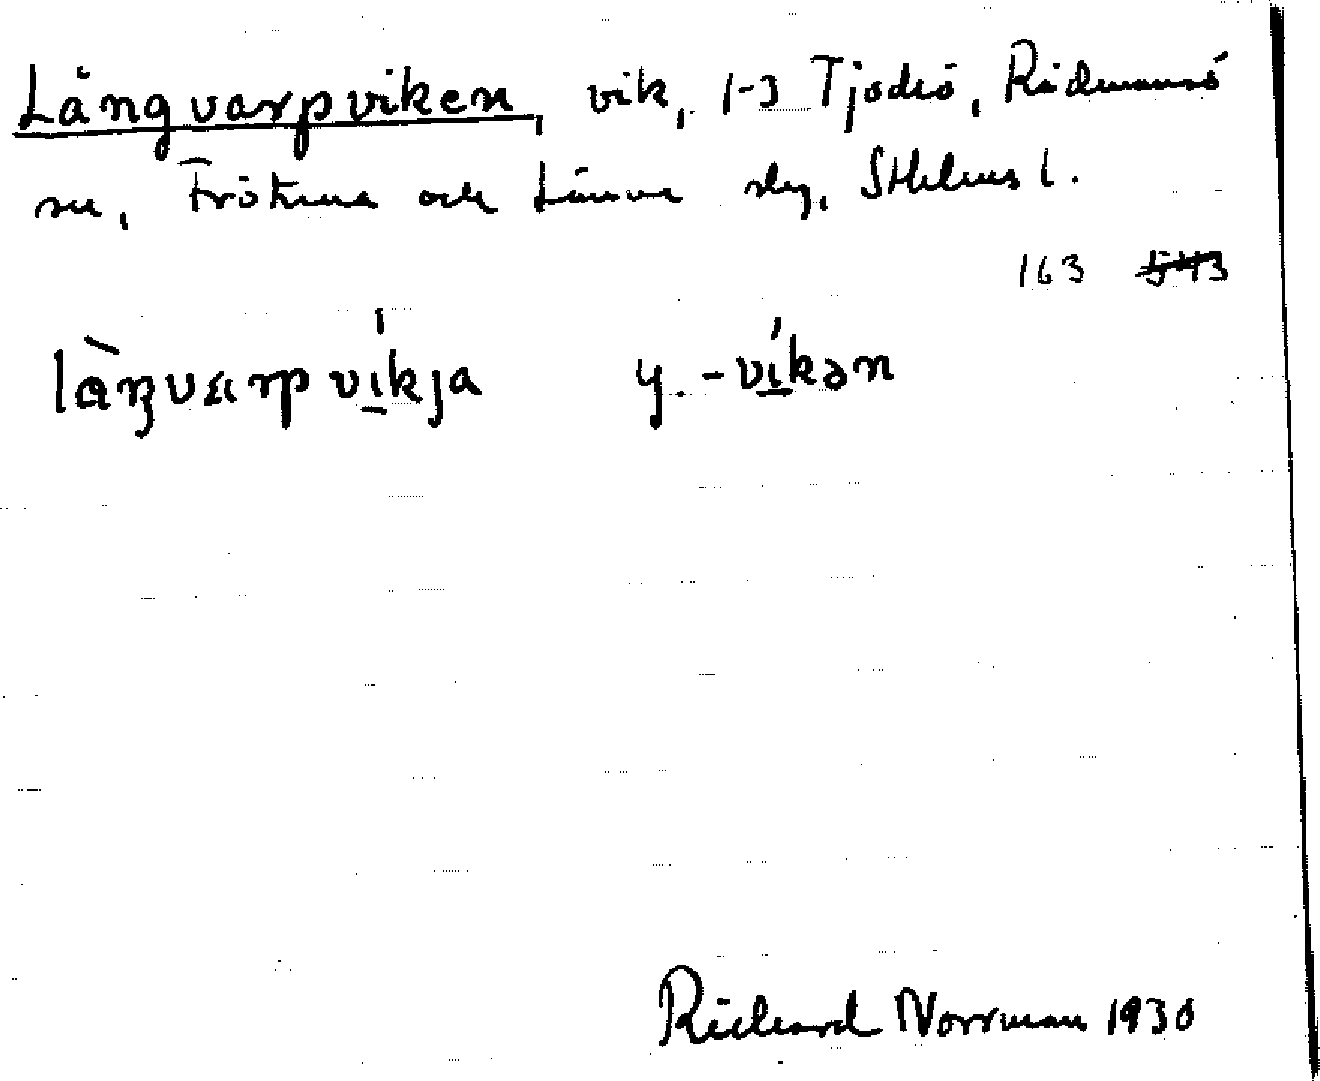 Långvarpviken, vik, 1-3 Tjockö, Rådmansö
sn, Frötuna och Länna slg, Sthlms l.
163
làŋvarpvikja y. -vikən
Richard Norrman 1930